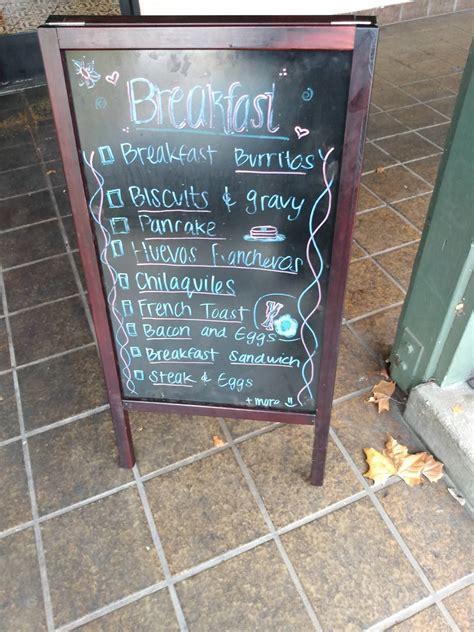 Breakfast
Breakfast Burritos
Biscuits & gravy
Panrake
Huevos Rancheros
Chilaquiles
French Toast
Bacon and Eggs
Breakfast Sandwich
Steak & Eggs
+ more